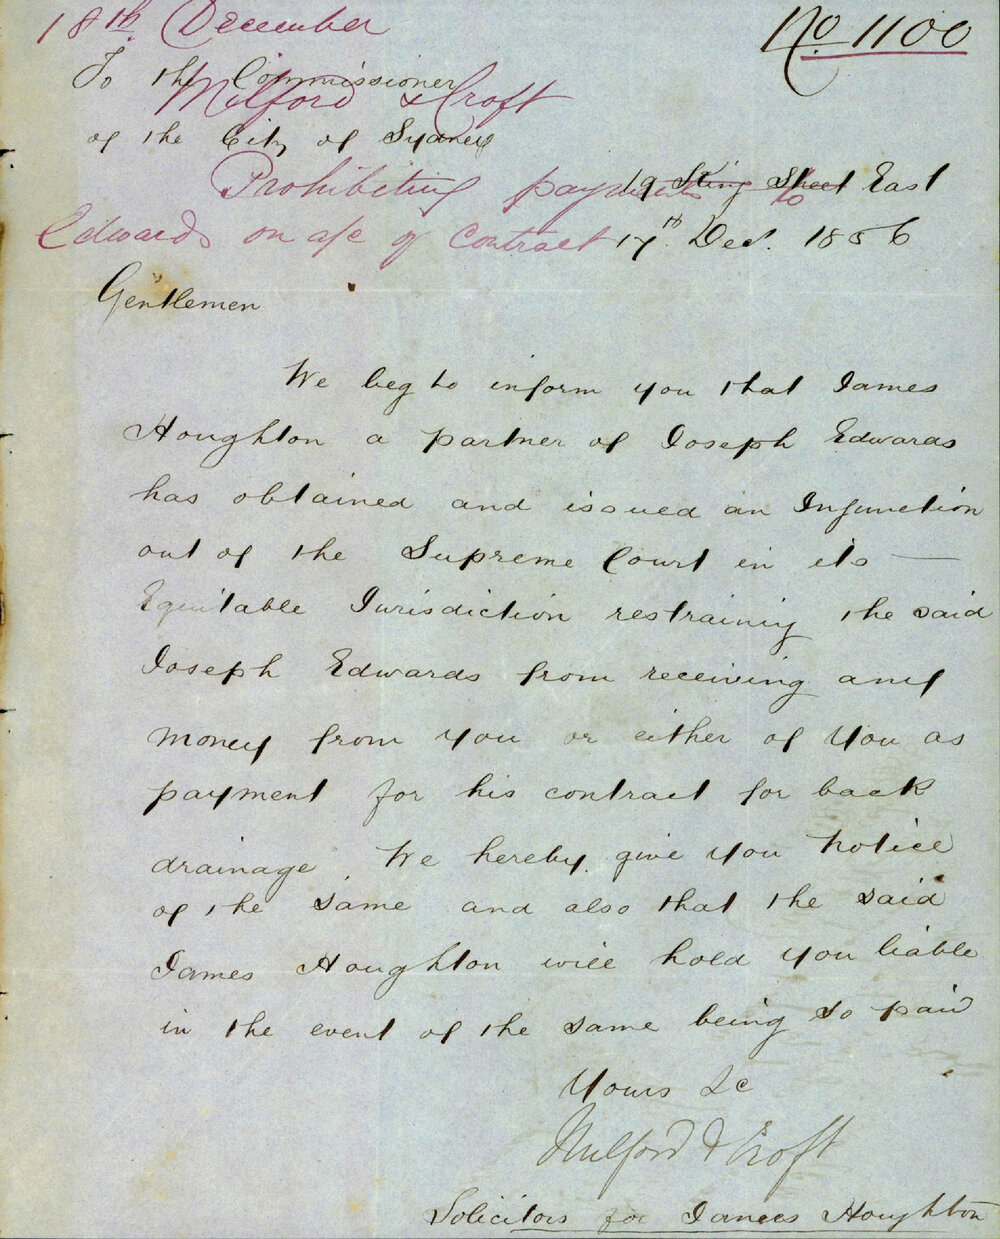 18th. December
No. 1100
To the Commissioner
Milford & Croft
of the City of Sydney
Prohibiting payment to
19 King Street East
Edwards on a/c of contract
17th. Dec. 1856
Gentlemen
We beg to inform you that James
Houghton a partner of Joseph Edwards
has obtained and issued an Injunction
out of the Supreme Court in its —
Equitable Jurisdiction restraining the said
Joseph Edwards from receiving any
money from you or either of you as
payment for his contract for back
drainage We hereby give you notice
of the same and also that the said
James Houghton will hold you liable
in the event of the same being so paid
Yours &c
Milford & Croft
Solicitors for James Houghton